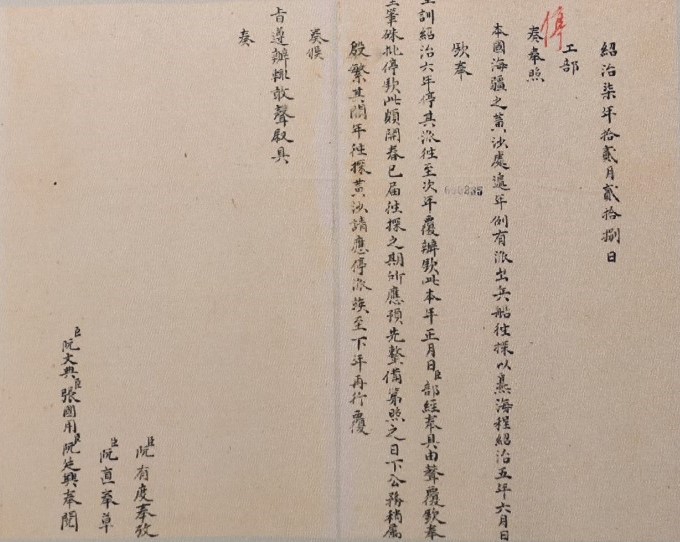 停
紹治柒年拾貳月貳拾捌日
工部
奏奉照
本國海疆之黃沙處遞年例有派出兵船往探以熟海程紹治五年六月日
欽奉
訓紹治六年停其派往至次年覆辦欽此本年正月日臣部經奉具由聲覆欽奉
硃批停欽此頗開春已届往探之期所應預先整備第照之日下公務稍屬
殷繁其閏年往探黃沙請應停派竢至下年再行覆
奏候
旨遵辦輒敢聲叙具
奏
臣阮有度奉攷
臣阮直奉草
臣阮文典臣張國用臣阮廷興奉閱
000235